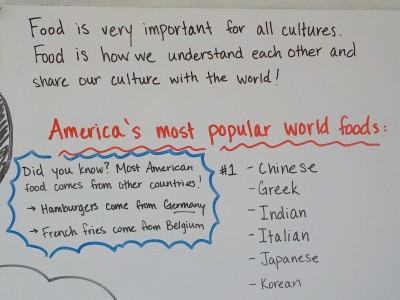 Food is very important for all cultures.
Food is how we understand each other and
share our culture with the world!
America's most popular world foods:
Did you know? Most American
food comes from other countries!
→ Hamburgers come from Germany
→ French fries come from Belgium
#1 - Chinese
- Greek
- Indian
- Italian
- Japanese
- Korean